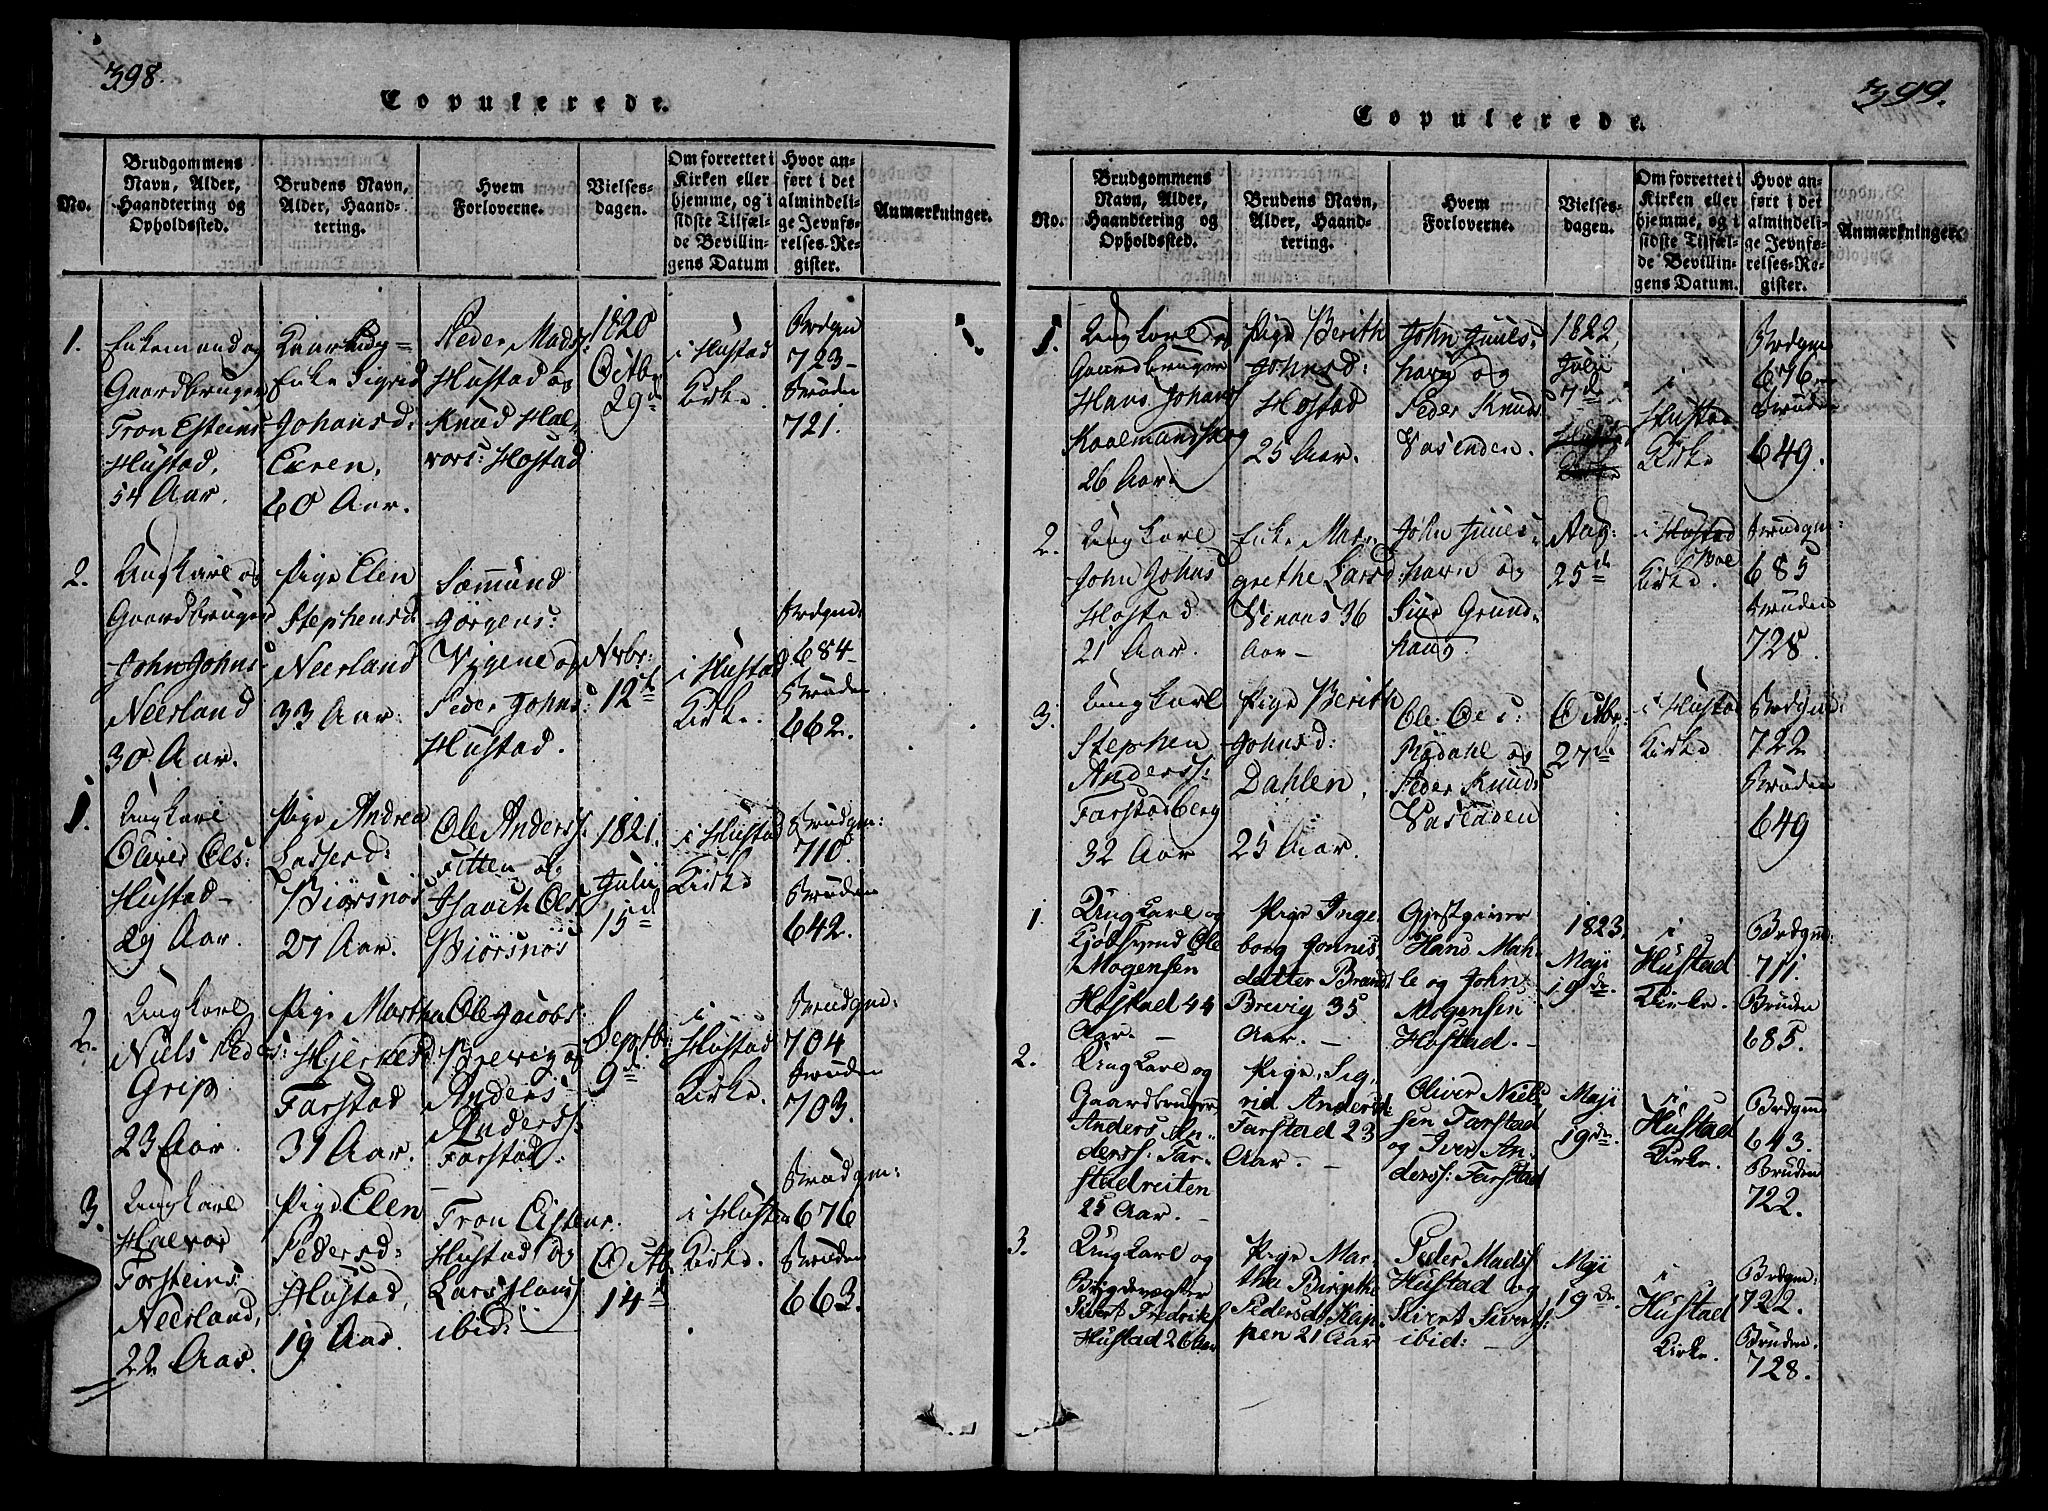 398.
Copulerede.
No.
Brudgommens
Navn, Alder,
Haandtering og
Opholdssted.
Brudens Navn,
Alder, Haand-
tering.
Hvem
Forloverne.
Vielses-
dagen.
Om forrettet i
Kirken eller
hjemme, og i
sidste Tilfæl-
de Bevillin-
gens Datum
Hvor an-
ført i det
almindeli-
ge Jevnfø-
relses-Re-
gister.
Anmærkninger.
1.
Enkemand og
Gaardbruger
Tron Esteins
Hustad,
54 Aar.
Enke Sigrid
Johansd:
Eeren,
60 Aar.
Peder Mads:
Hustad og
Knud Hal-
vors: Hostad
1820
Octbr
29de
i Hustad
Kirke.
Brdgm
723-
Bruden
721.
2.
Ungkarl og
Gaardbruger
John Johns:
Neerland
30 Aar.
Pige Elen
Stephensd
Neerland
33 Aar.
Sæmund
Jörgens:
og
Peder Johns:
Hustad.
Nvbr:
12te
i Hustad
Kirke.
Brdgm:
684-
Bruden
662.
1.
Ungkarl
Oliver Ols:
Hustad-
29 Aar.
Pige Andrea
Lassesd:
Biörsnös
27 Aar.
Ole Anderss:
Fitten og
Isaach Ols
Biörsnös
1821.
Julii
15de
i Hustad
Kirke
Brudgm:
710.
Bruden
642.
2.
Ungkarl
Niels Peders:
Grip
23 Aar.
Pige Martha
Farstad
31 Aar.
Ole Jacobs:
Brevig og
Anders
Anderss:
Farstad.
Septbr:
9de
i
Hustad
Kirke.
Brudgm:
704
Bruden
703.
3.
Ungkarl
Halvor
Torsteins:
Neerland,
22 Aar.
Pige Elen
Pedersd:
Hustad,
19 Aar.
Tron Eistens:
Hustad og
Lars Hans
ibid: -
Octb.
14de
i Hustad
Kirke.
Brudgm:
676
Bruden
663.
399.
Copulerede.
No.
Brudgommens
Navn, Alder,
Haandtering og
Opholdssted.
Brudens Navn,
Alder, Haand-
tering.
Hvem
Forloverne.
Vielses-
dagen.
Om forrettet i
Kirken eller
hjemme, og i
sidste Tilfæl-
de Bevillin-
gens Datum.
Hvor an-
ført i det
almindeli-
ge Jevnfø-
relses-Re-
gister.
Anmærkninger.
1.
Ungkarl og
Gaardbruger
Hans Johans
Kaalmandskog
26 Aar.
Pige Berith
Johnsd:
Hostad
25 Aar.
John Juuls-
havn og
Peder Knuds
Vasenden.
1822,
Julii
7de
i
Hustad
Kirke
Brdgm
676
Bruden
649.
2.
Ungkarl
John Johns
Hostad
21 Aar.
Enke Mar-
grethe Larsd:
Venaas 36
Aar-
John Juuls-
havn og
Siur Grund-
haug.
Aug:
25de
i Hustad
Boe
Kirke.
Brudgm:
685
Bruden
728.
3.
Ungkarl
Stephen
Anderss:
Farstadberg
32 Aar
Pige Berith
Johnsd:
Dahlen,
25 Aar.
Ole Ols:
Rödahl og
Peder Knuds
Vasenden
Octbr:
27de
i Hustad
Kirke
Brdgm:
722
Bruden
649
1.
Ungkarl og
Kjöbsvend Ole
Mogensen
Hostad 44
Aar. -
Pige Inge-
borg Jonnis
datter Brandt
Brevig 35
Aar. -
Gjestgiver
Hans Mah-
le og John
Mogensen
Hostad. -
1823.
Maji
19de.
i
Hustad
Kirke.
Brdgm:
711.
Bruden
685.
2.
Ungkarl og
Gaardbruger
Anders An-
derss: Far-
stadreiten
25 Aar. -
Pige, Sig-
rid Andersd:
Farstad 23
Aar. -
Oliver Niel-
sen Farstad
og Iver An-
derss: Farstad
Maji
19de.
i
Hustad
Kirke.
Brdgm
643.
Bruden
722.
3.
Ungkarl og
Bygdevægter
Sivert Fredriks
Hustad 26 Aar
Pige Mar-
tha Birgithe
Pedersd: Kap-
pen 21 Aar
Peder Madss
Hustad og
Sivert Siverts:
ibid: -
Maji
19de.
i
Hustad
Kirke.
Brdgm:
722.
Bruden
728.